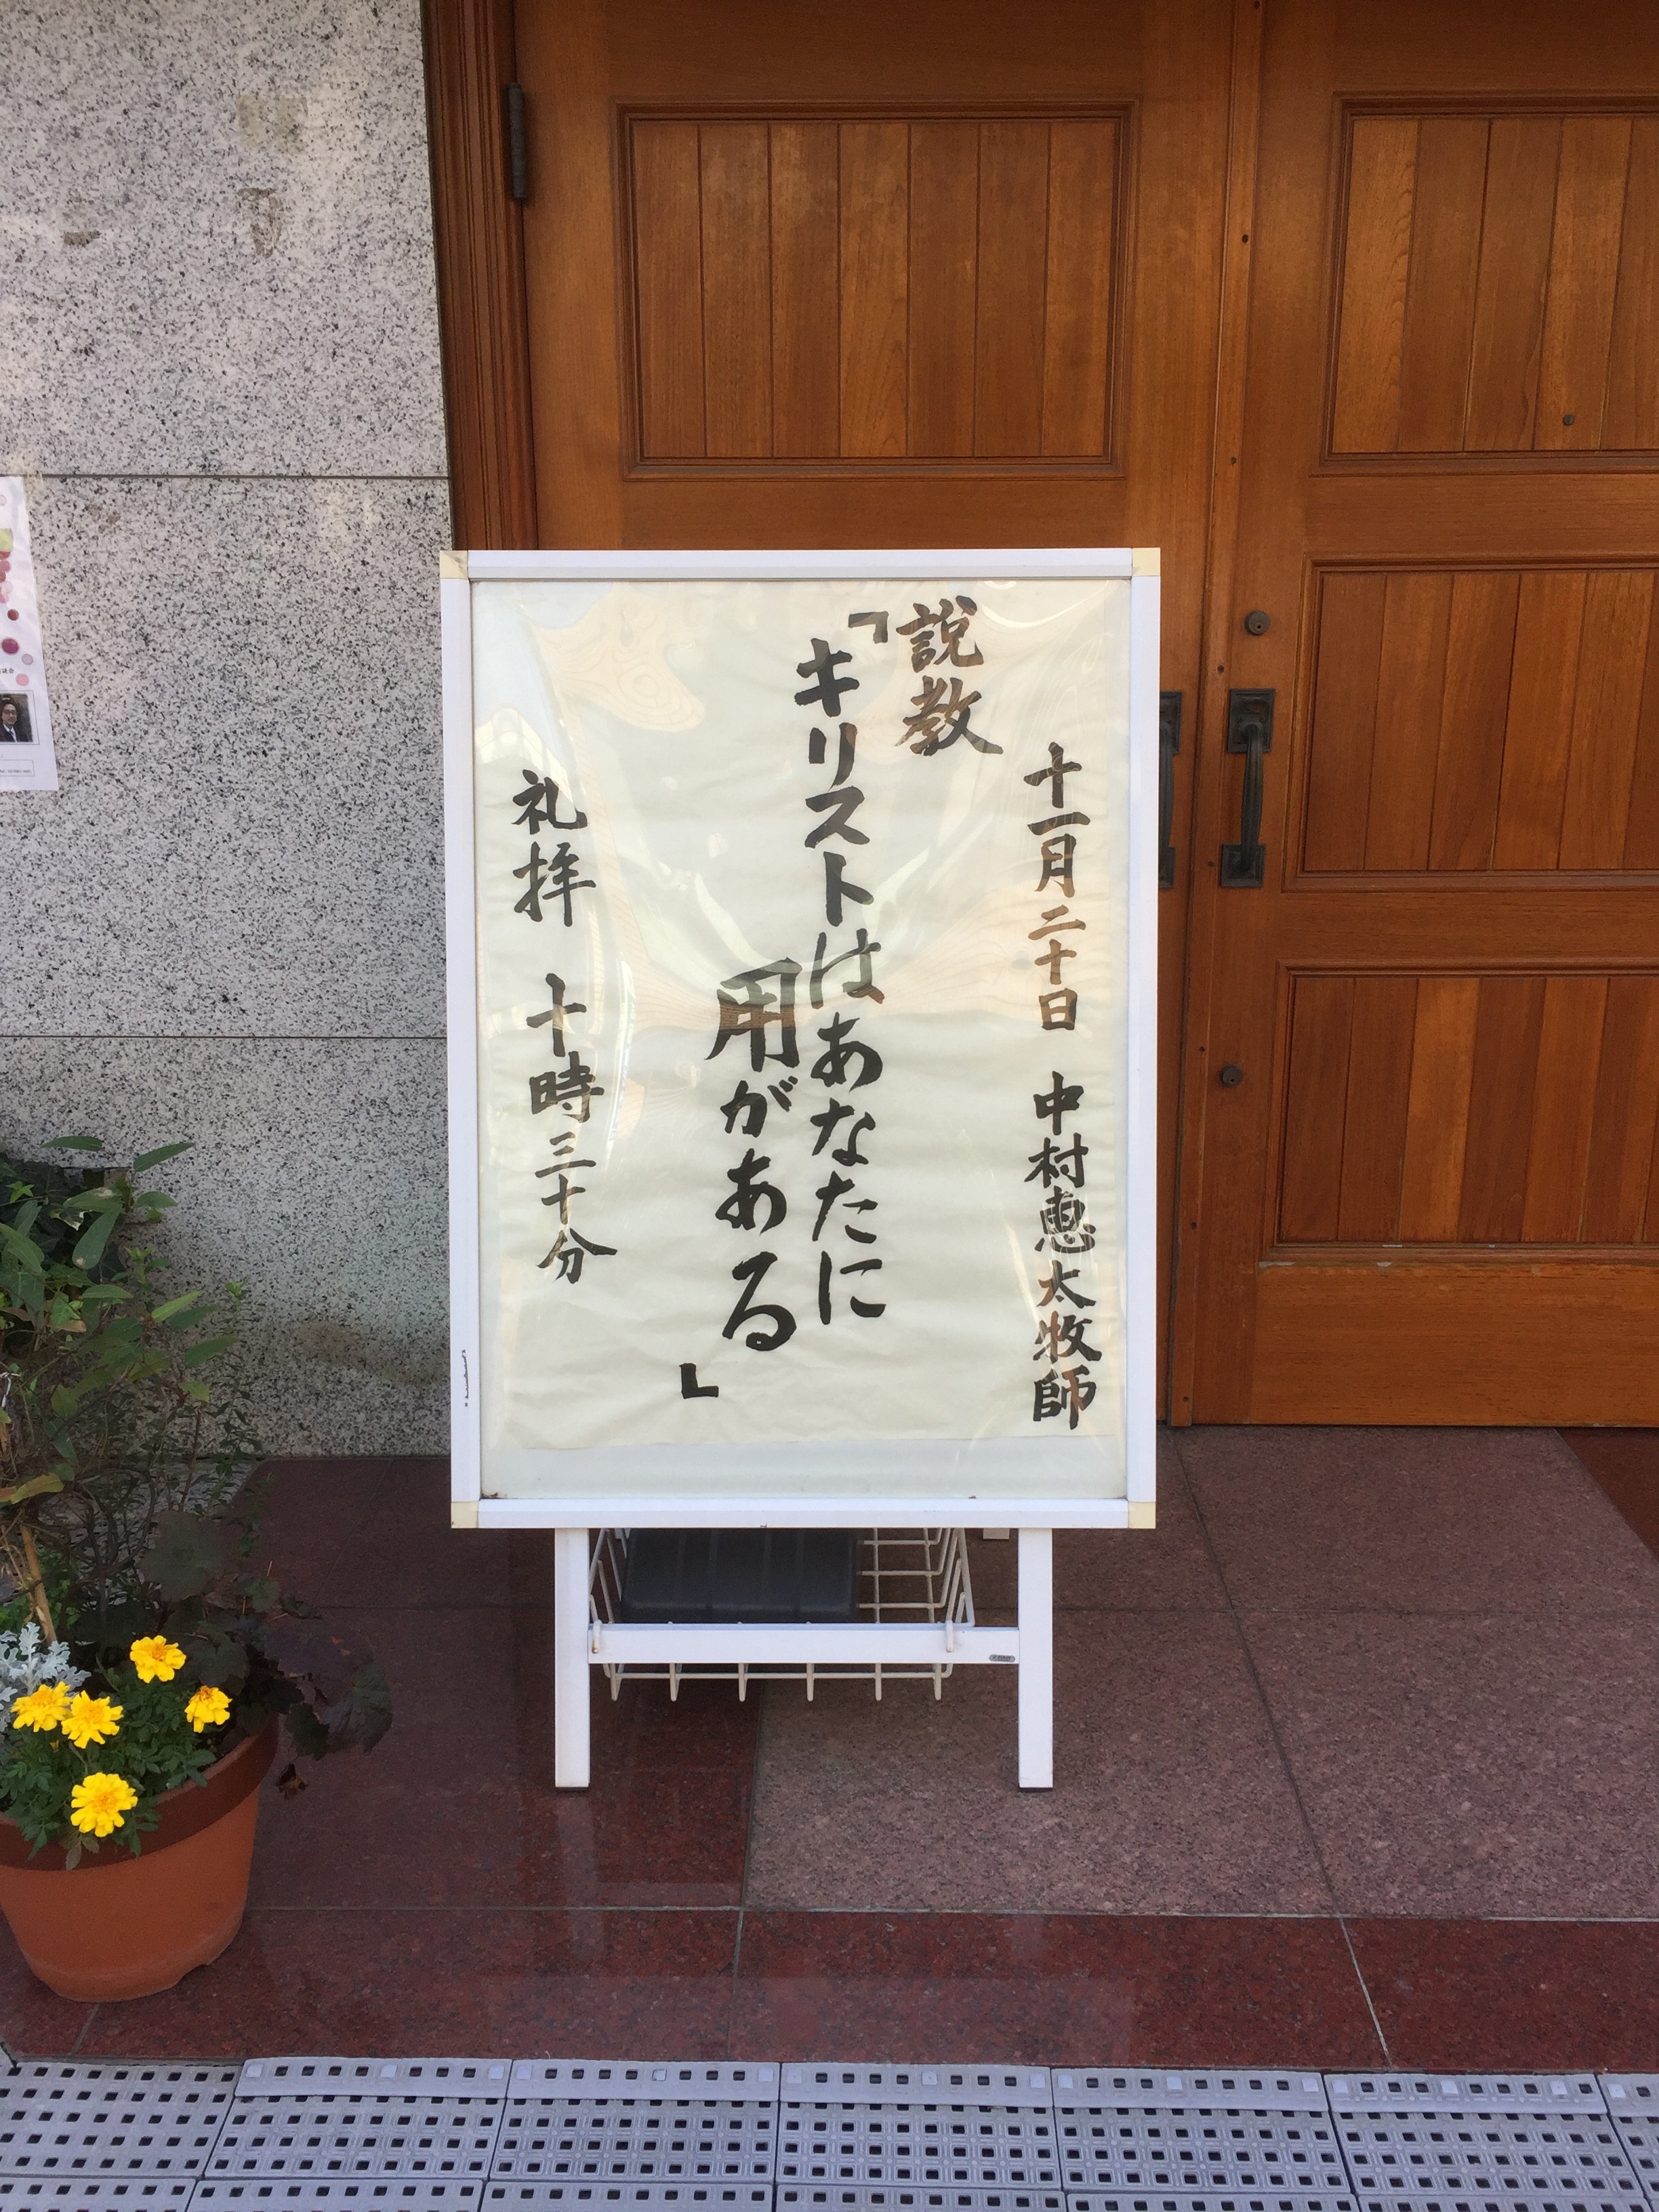 十一月二十日 中村恵太牧師
説教
「キリストはあなたに
用がある」
礼拝 十時三十分